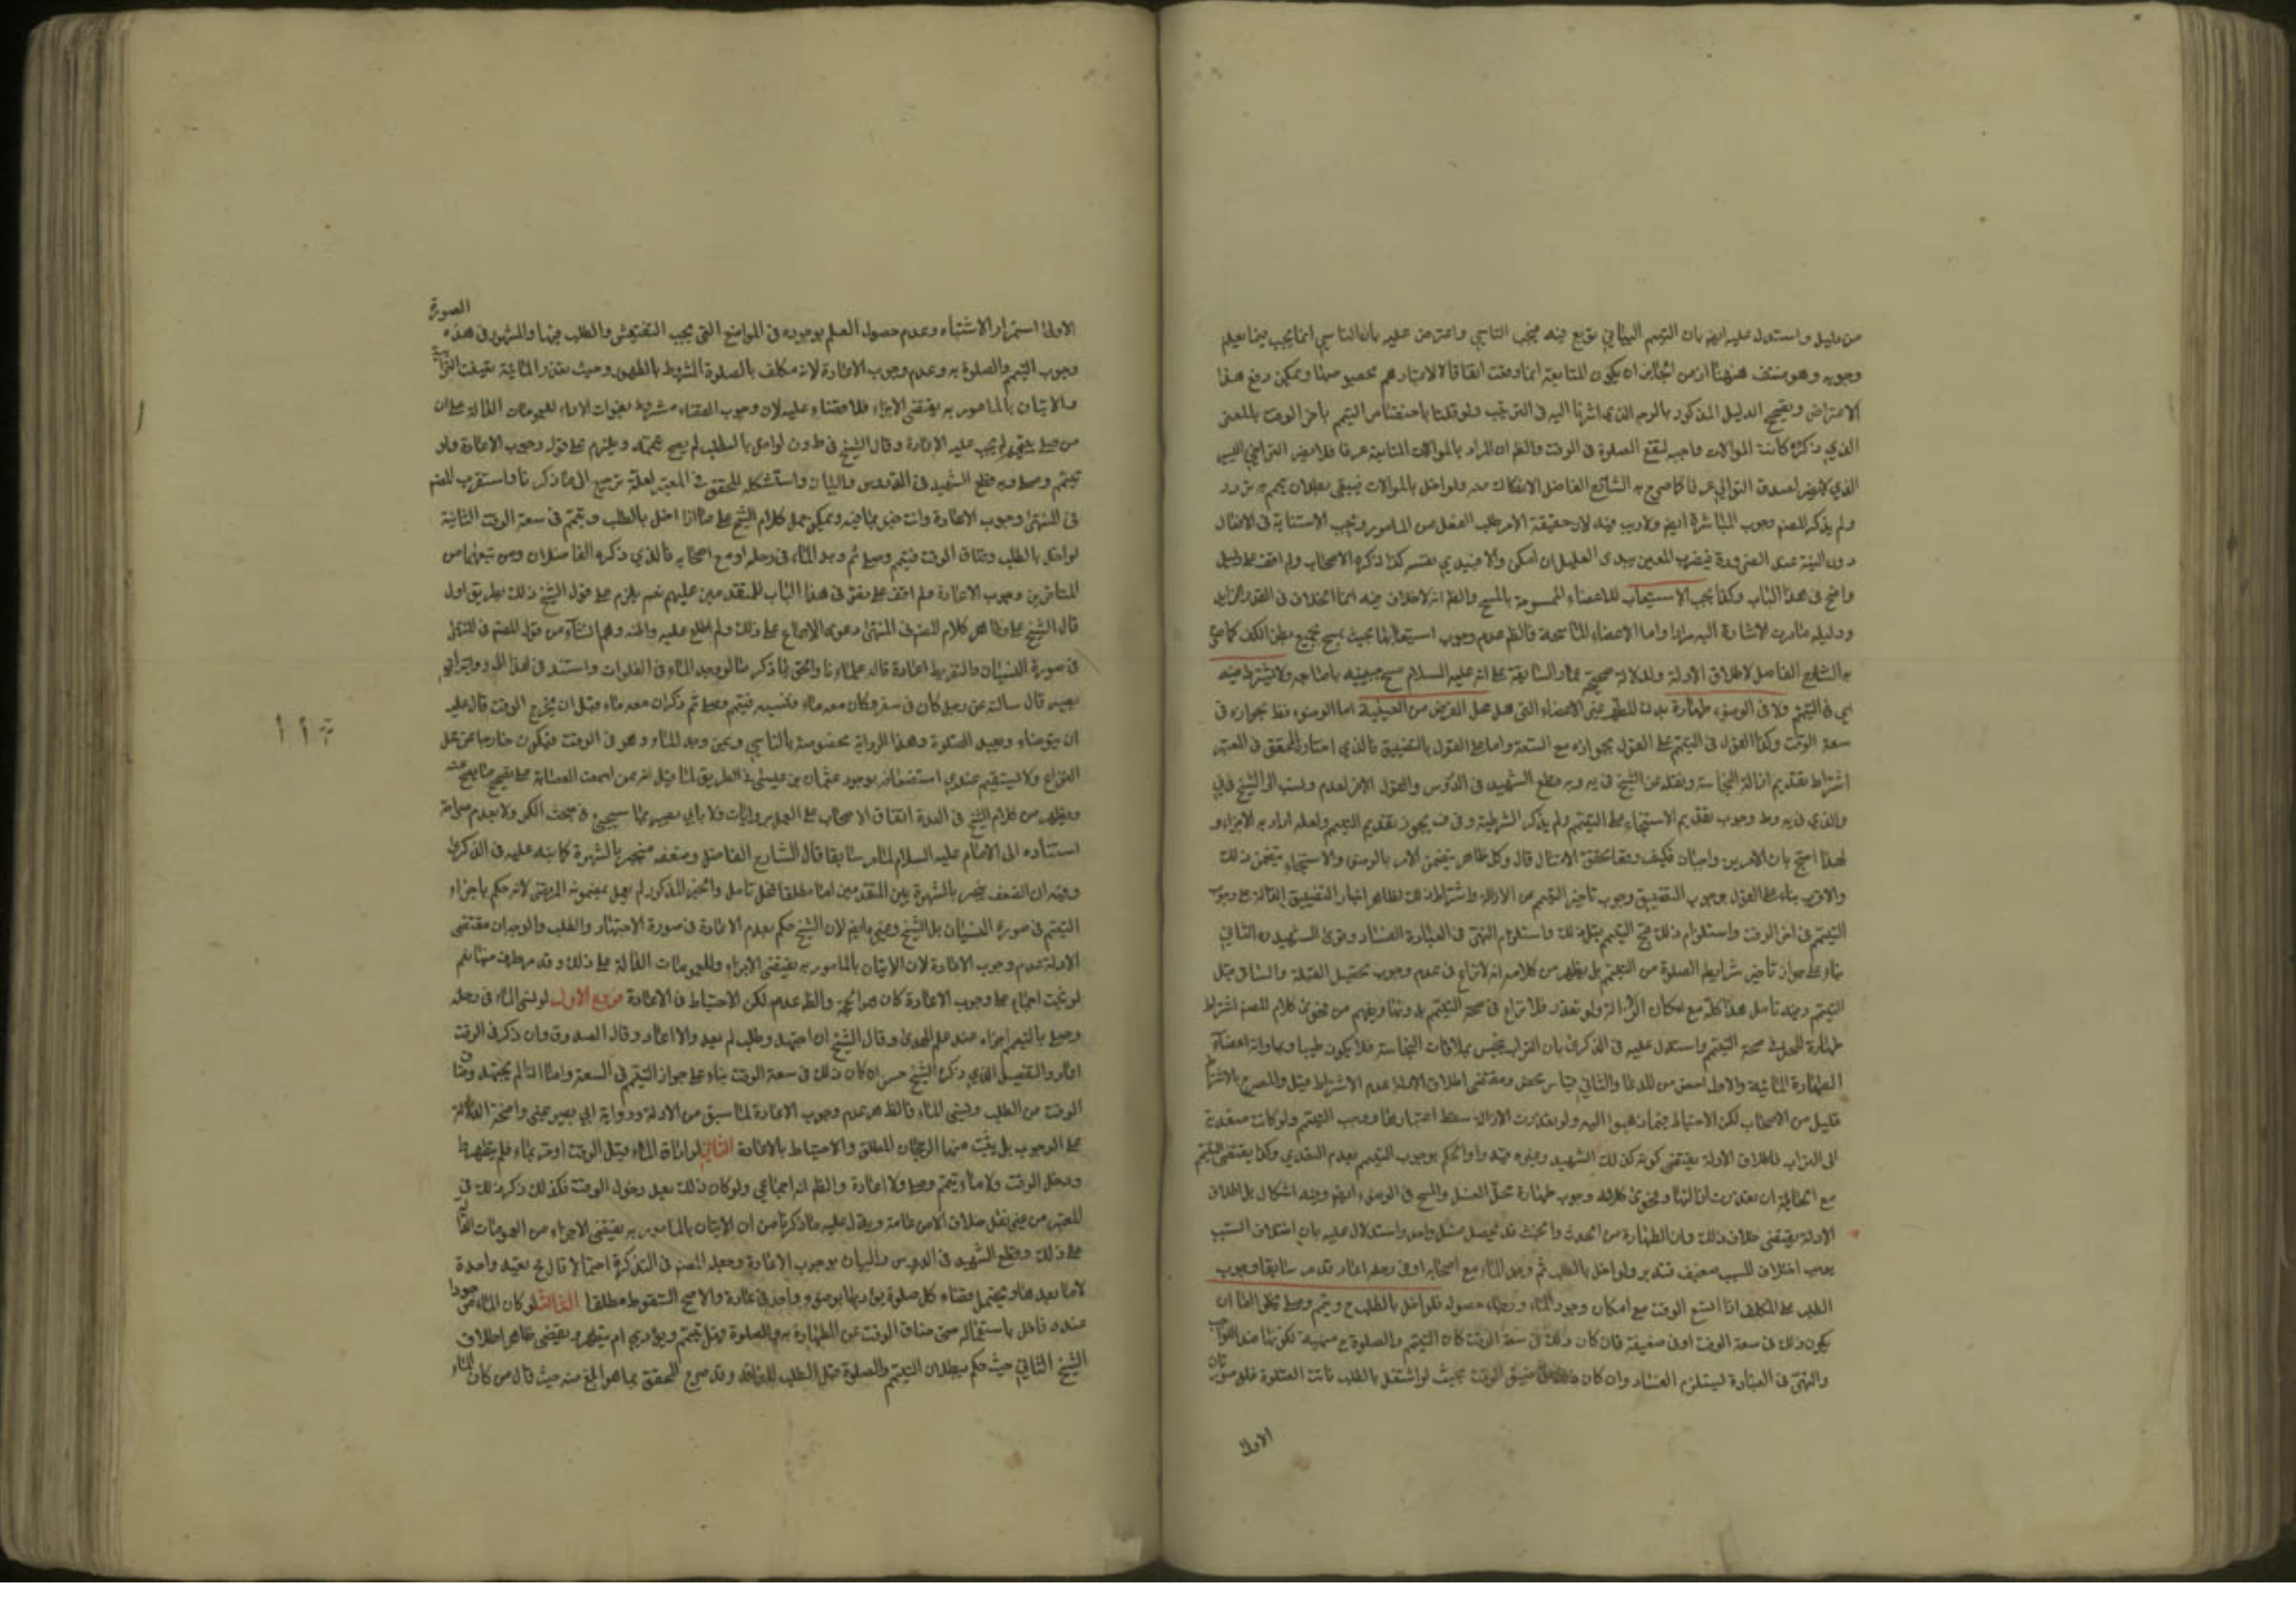 من دليل واستدل عليه ايضا بان التيمم البياني توبع فيه فيجب التاسي واعترض عليه بان التاسي انما يجب فيما يعلم
وجوبه وهو منتف هنهنا اذ من الجائز ان يكون المتابعة انما وقعت اتفاقا لا لاعتبارهم
الاعتراض الدليل المذكور بالوجه الذي اشرنا اليه في الترتيب ولو قلنا باختصاص التيمم باخر الوقت بالمعنى
الذي ذكره كانت الموالات واجبه لتقع الصلوة في الوقت والظ ان المراد بالموالات المتابعة عرفا فلا يضر التراخي اليسير
الذي لا يضر لصدق التوالي عرفا كما صرح به الشارح الفاضل الانفكاك منه ولو اخل بالموالات فيبقى بطلان تيممه تردد
ولم يذكر المصنف وجوب المباشرة ايضا ولا ريب فيه لان حقيقة الامر طلب الفعل من المامور وتجب الاستنابة في الافعال
دون النية عند الضرورة فيضرب المعين بيدي العليل ان امكن والا فبيدي نفسه كذا ذكره الاصحاب ولم اقف على دليل
واضح في هذا الباب وكذا يجب الاستيعاب للاعضاء الممسوحة بالمسح والظ انه لا خلاف فيه انما الخلاف في القدر
ودليله الاشارة اليه مرارا واما الاعضاء الماسحة فالظ عدم وجوب استيعابها بحيث يمسح بجميع بطن الكف كما صرح
به الشارح الفاضل لاطلاق الادلة ولدلالة صحيحة السابقة على انه عليه السلام مسح جبينيه باصابعه ولا يشترط فيه
اي في التيمم ولا في الوضوء طهارة بدن المتطهر عن الاعضاء التي هي محل الفرض من العينية اما الوضوء فظ بجوازه في
سعة الوقت وكذا القول في التيمم على القول بجوازه مع السعة واما على القول بالتضييق فالذي اختاره المحقق في المعتبر
اشتراط تقديم ازالة النجاسة ونقله عن الشيخ في يه وبه قطع الشهيد في الدروس والقول الاخر لعدم ونسب الى الشيخ في
والذي في يه وط وجوب تقديم الاستنجاء على التيمم ولم يذكر الشرطية وفي ف يجوز تقديم التيمم ولعله اراد به الاجزاء و
لهذا احتج بان الامرين واجبان فكيف وقعا تحقق الامتثال قال وكل ظاهر يتضمن الامر بالوضوء والاستنجاء يتضمن ذلك
والاقرب بناء على القول بوجوب التضييق وجوب تاخير التيمم عن الازالة واشتراط ذلك لظاهر اخبار التضييق الدالة على وجوب
التيمم في اخر الوقت واستلزام ذلك التيمم قبل ذلك واستلزام النهي في العبادة الفساد وقوى الشهيد ره الثاني
بناء على جواز تاخير شرايط الصلوة من التيمم بل يظهر من كلامه انه لا نزاع في عدم وجوب تحصيل القبلة والساتر قبل
التيمم وفيه تامل هذا كله مع امكان الازالة ولو تعذر فلا نزاع في صحة التيمم بدونها ويفهم من فحوى كلام المصنف اشتراط
طهارة المحل في صحة التيمم واستدل عليه في الذكرى بان التراب ينجس بملاقات النجاسة فلا يكون طيبا وبمساواته اعضاء
الطهارة المائية والاول اخص من المدعا والثاني قياس محض ومقتضى اطلاق الادلة عدم الاشتراط قيل والمصرح بالاشتراط
قليل من الاصحاب لكن الاحتياط فيما ذهبوا اليه ولو تعذرت الازالة سقط اعتبارها ووجب التيمم ولو كانت متعدية
الى التراب فاطلاق الادلة يقتضي كونه كذلك الشهيد وغيره فيه واو الحكم بوجوب التيمم بعدم التعدي وكذا يقتضي التيمم
مع الحائلة ان تعذرت ازالتها وفحوى كلامه وجوب طهارة محل الغسل والمسح في الوضوء ايضا وفيه اشكال بل اطلاق
الادلة يقتضي خلاف ذلك وان الطهارة من الحدث والخبث قد تحصل بغسل واحد واستدلال عليه بان اختلاف السبب
يوجب اختلاف المسبب ضعيف فتدبر ولو اخل بالطلب ثم وجد الماء مع اصحابه او في رحله اعاد قد مر سابقا وجوب
الطلب على المكلف اذا اتسع الوقت مع امكان وجود الماء ورجاء حصوله فلو اخل بالطلب ح وتيمم وصلى فلا يخلو اما ان
يكون ذلك في سعة الوقت او في ضيقه فان كان ذلك في سعة الوقت كان التيمم والصلوة ح منهية لكونها ضد الواجب
والنهي في العبادة ليستلزم الفساد وان كان ذلك في ضيق الوقت بحيث لو اشتغل بالطلب فاتت الصلوة فله صورتان
الاولى
الصورة
الاولى استمرار الاشتباه وعدم حصول العلم بوجوده في المواضع التي يجب التفتيش والطلب فيها والمشهور في هذه
وجوب التيمم والصلوة به وعدم وجوب الاعادة لانه مكلف بالصلوة المشروط بالطهور وحيث تعذر المائية تعينت الترابية
والاتيان بالمامور به يقتضي الاجزاء فلا قضاء عليه لان وجوب القضاء مشروط بفوات الاداء للعمومات الدالة على ان
من صلى بتيمم لم يجب عليه الاعادة وقال الشيخ في ط ون لو اخل بالطلب لم يصح تيممه ويلزم على قوله وجوب الاعادة ولو
تيمم وصلى وبه قطع الشهيد في الدروس والبيان واستشكله المحقق في المعتبر لعله ترجع الى ما ذكرنا واستقرب المصنف
في المنتهى وجوب الاعادة وانت خبير بما فيه ويمكن حمل كلام الشيخ على ما اذا اخل بالطلب وتيمم في سعة الوقت الثانية
لو اخل بالطلب وضاق الوقت فتيمم وصلى ثم وجد الماء في رحله او مع اصحابه فالذي ذكره الفاضلان ومن تبعهما من
المتاخرين وجوب الاعادة ولم اقف على نص في هذا الباب للمتقدمين عليهم نعم يلزم على قول الشيخ ذلك بطريق اولى
كلام المصنف في المنتهى دعوى الاجماع على ذلك ولم اطلع عليه
في صورة النسيان والتفريط اعادة قاله علماؤنا والحق بما ذكر ما لو وجد الماء في الفلوات واستند في هذا الى رواية ابي
بصير قال سالته عن رجل كان في سفر وكان معه ماء فنسيه فتيمم وصلى ثم ذكر ان معه ماء قبل ان يخرج الوقت قال عليه
ان يتوضاء ويعيد الصلوة وهذا الرواية مخصوصة بالناسي وبمن وجد الماء وهو في الوقت فيكون خارجا عن محل
النزاع ولا يستقيم عندي استضعافه بوجود عثمان بن عيسى في الطريق لما قيل انه ممن اجمعت العصابة على تصحيح ما يصح عنه
ويظهر من كلام الشيخ في العدة اتفاق الاصحاب على العمل بروايات ولا بابي بصير مما سيجئ في مبحث الكر ولا بعدم صراحة
استناده الى الامام عليه السلام لما مر سابقا قال الشارح الفاضل وضعفه منجبر بالشهرة كما نبه عليه في الذكرى
وفيه ان الضعف ينجبر بالشهرة بين المتقدمين اما مطلقا فمحل تامل والخبر المذكور لم يعمل بمضمونه المرتضى لانه حكم باجزاء
التيمم في صورة النسيان بل الشيخ وغيره ايضا لان الشيخ حكم بعدم الاعادة في صورة الاجتهاد والطلب والوجه ان مقتضى
الادلة عدم وجوب الاعادة لان الاتيان بالمامور به يقتضي الاجزاء وللعمومات الدالة على ذلك وقد مر طرف منها نعم
لو ثبت اجماع على وجوب الاعادة كان هو الحجة والظ عدمه لكن الاحتياط في الاعادة فروع الاول لو نسي الماء في رحله
وصلى بالتيمم اجزاء عند علم الهدى وقال الشيخ ان اجتهد وطلب لم يعد والا اعاد وقال الصدوق وان ذكر في الوقت
اعاد والتفصيل الذي ذكره الشيخ حسن ان كان ذلك في سعة الوقت بناء على جواز التيمم في السعة واما اذا لم يجتهد وضاق
الوقت من الطلب ونسي الماء فالظ هو عدم وجوب الاعادة لما سبق من الادلة ورواية ابي بصير غير واضحة الدلالة
على الوجوب بل يثبت منها الرجحان المطلق والاحتياط بالاعادة الثاني لو اراق الماء قبل الوقت او مر بماء فلم يتطهر
ودخل الوقت ولا ماء تيمم وصلى ولا اعادة والظ انه اجماعي ولو كان ذلك بعد دخول الوقت فكذلك ذكر ذلك في
المعتبر من غير نقل خلاف الا من العامة ويدل عليه ما ذكرنا من ان الاتيان بالمامور به يقتضي الاجزاء من العمومات الدالة
على ذلك وقطع الشهيد في الدروس والبيان بوجوب الاعادة وجعله المصنف في التذكرة احتمالا قال ح يعيد واحدة
لا ما بعدها ويحتمل قضاء كل صلوة يؤديها بوضوء واحد في عادة والاصح السقوط مطلقا الثالث لو كان الماء موجودا
عنده فاخل باستعماله حتى ضاق الوقت عن الطهارة به والصلوة فهل تيمم ويؤدي ام يتطهر ويقضي ظاهر اطلاق
الشيخ الثاني حيث حكم ببطلان التيمم والصلوة قبل الطلب للفاقد وقد صرح المحقق بما هو ابلغ منه حيث قال من كان الماء